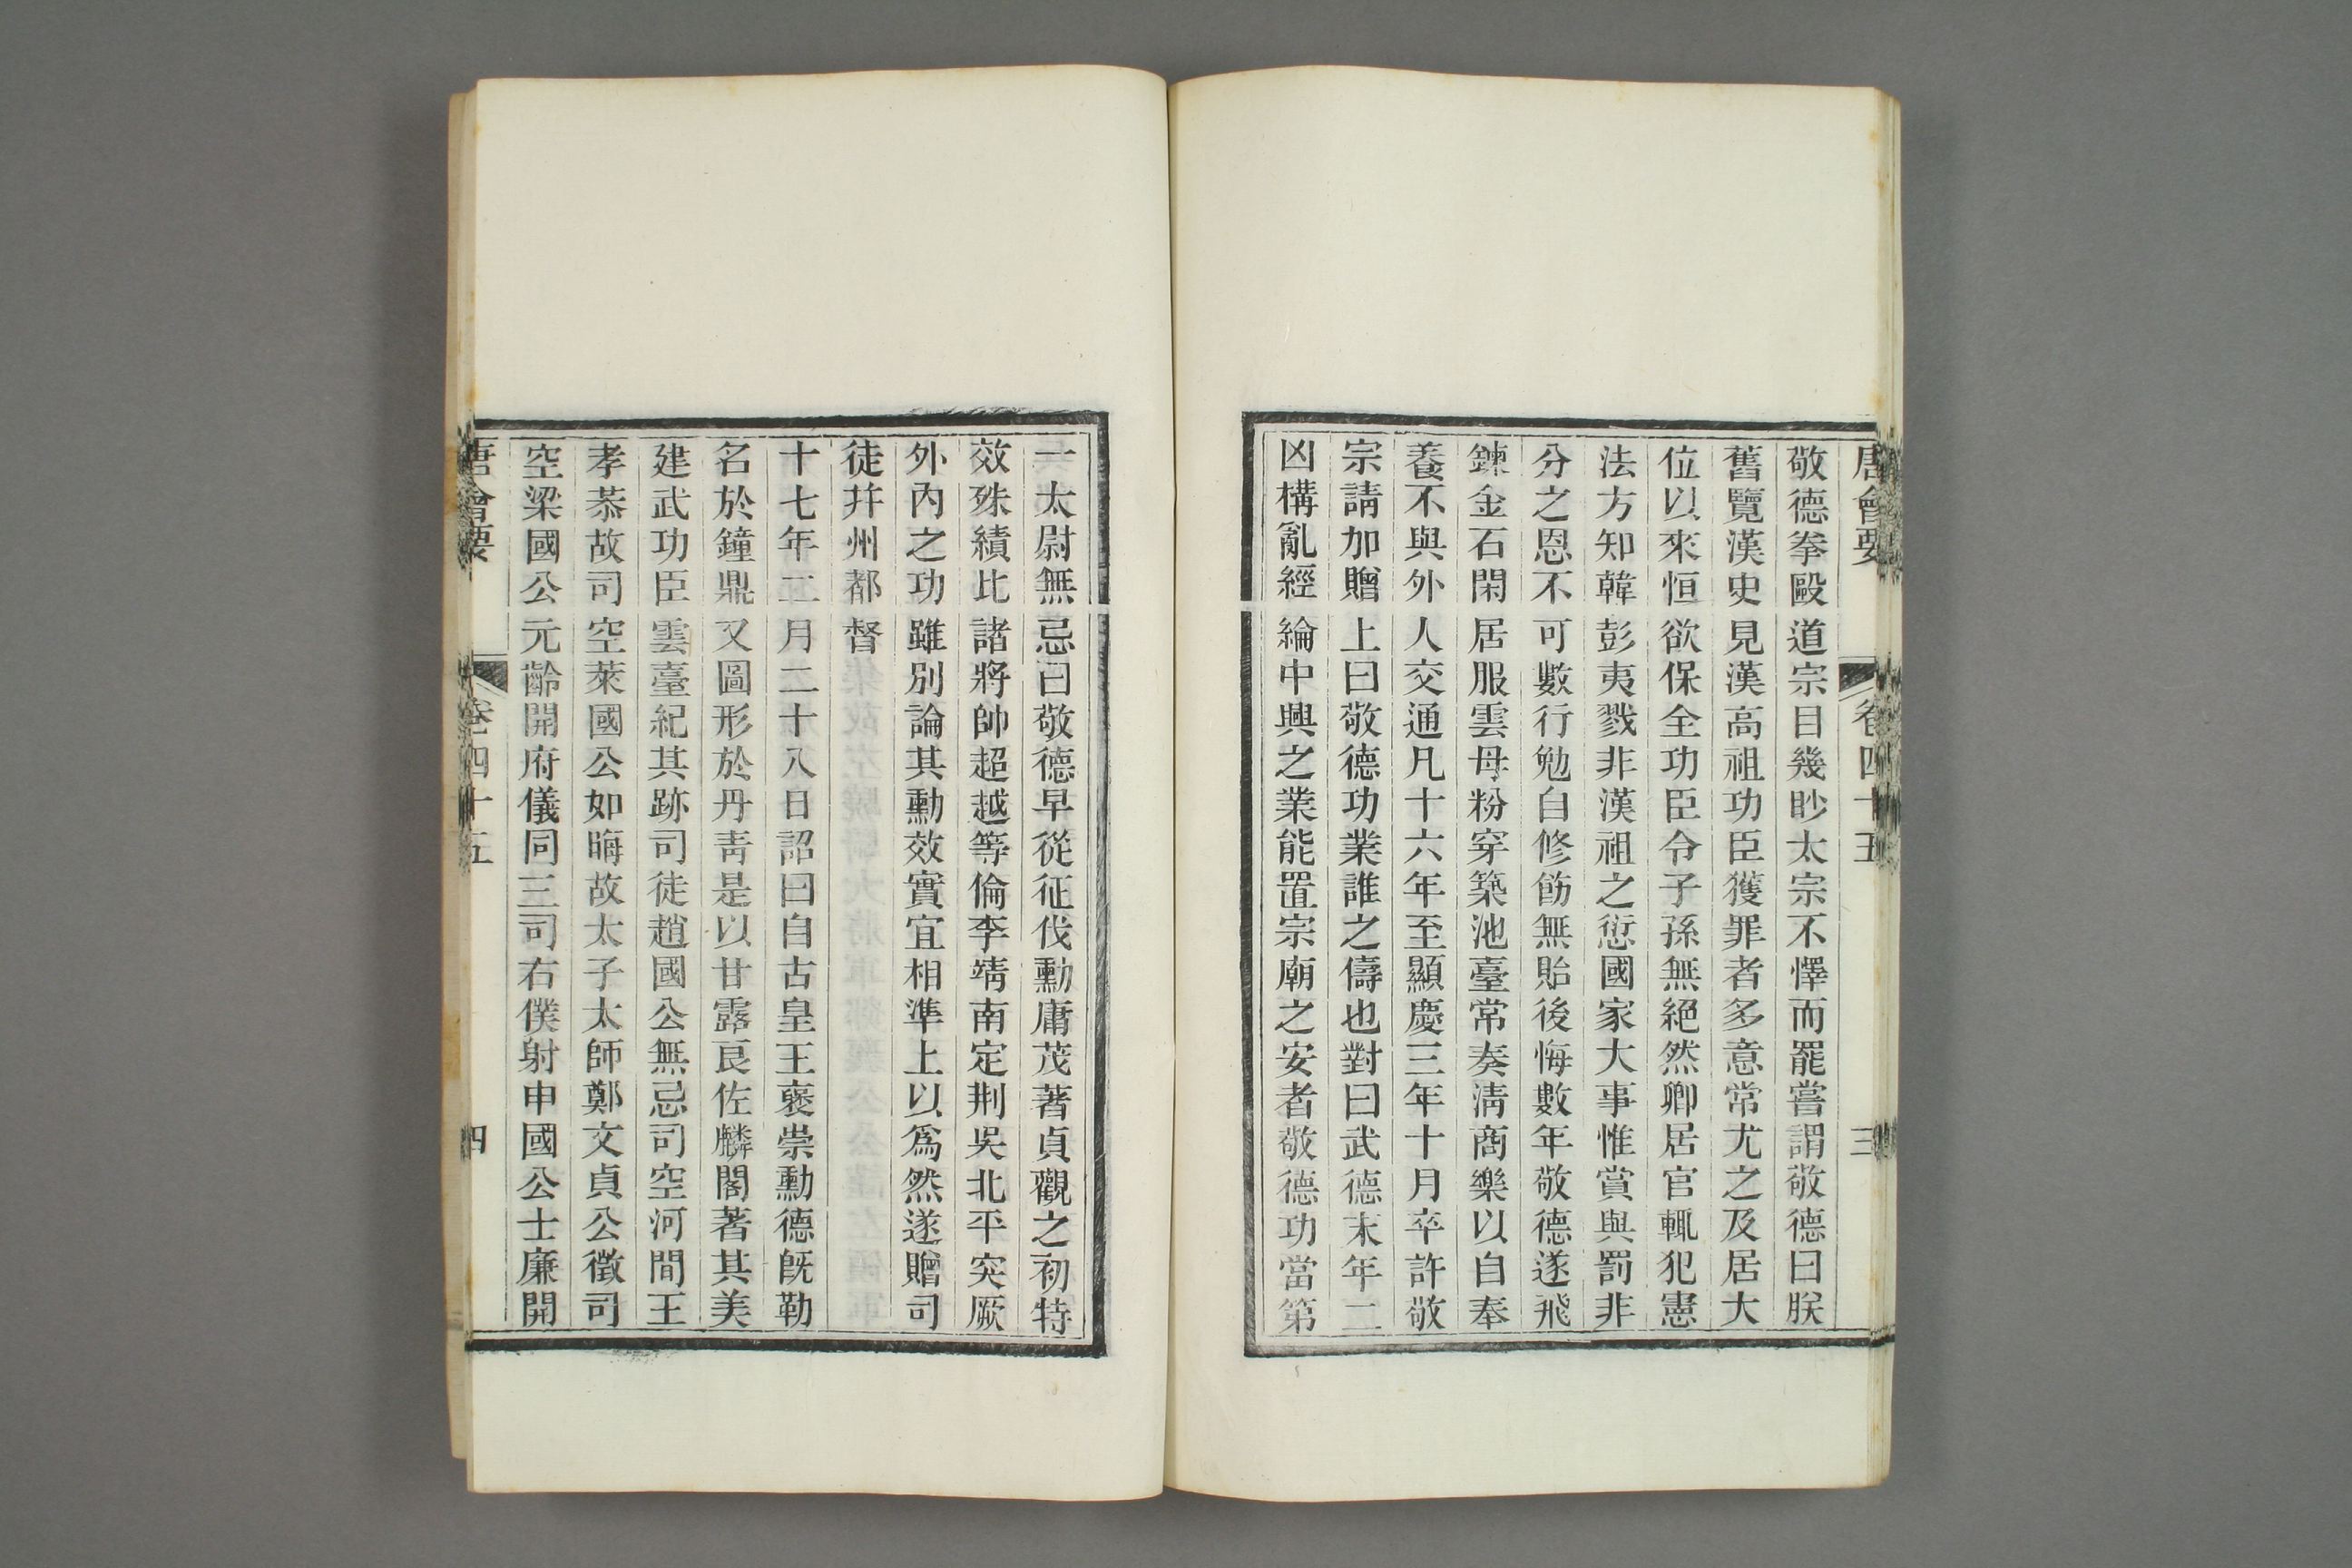 唐會要 卷四十五 三
敬德拳毆道宗目幾眇太宗不懌而罷嘗謂敬德曰朕
舊覽漢史見漢高祖功臣獲罪者多意常尤之及居大
位以來恒欲保全功臣令子孫無絕然卿居官輒犯憲
法方知韓彭夷戮非漢祖之愆國家大事惟賞與罰非
分之恩不可數行勉自修飭無貽後悔數年敬德遂飛
鍊金石閑居服雲母粉穿築池臺常奏淸商樂以自奉
養不與外人交通凡十六年至顯慶三年十月卒許敬
宗請加贈上曰敬德功業誰之儔也對曰武德末年二
凶構亂經綸中興之業能置宗廟之安者敬德功當第
一太尉無忌曰敬德早從征伐勳庸茂著貞觀之初特
效殊績比諸將帥超越等倫李靖南定荆吳北平突厥
外內之功雖別論其勳效實宜相準上以爲然遂贈司
徒幷州都督
十七年二月二十八日詔曰自古皇王褒崇勳德旣勒
名於鐘鼎又圖形於丹靑是以甘露良佐麟閣著其美
建武功臣雲臺紀其跡司徒趙國公無忌司空河間王
孝恭故司空萊國公如晦故太子太師鄭文貞公徵司
空梁國公元齡開府儀同三司右僕射申國公士廉開
唐會要 卷四十五 四